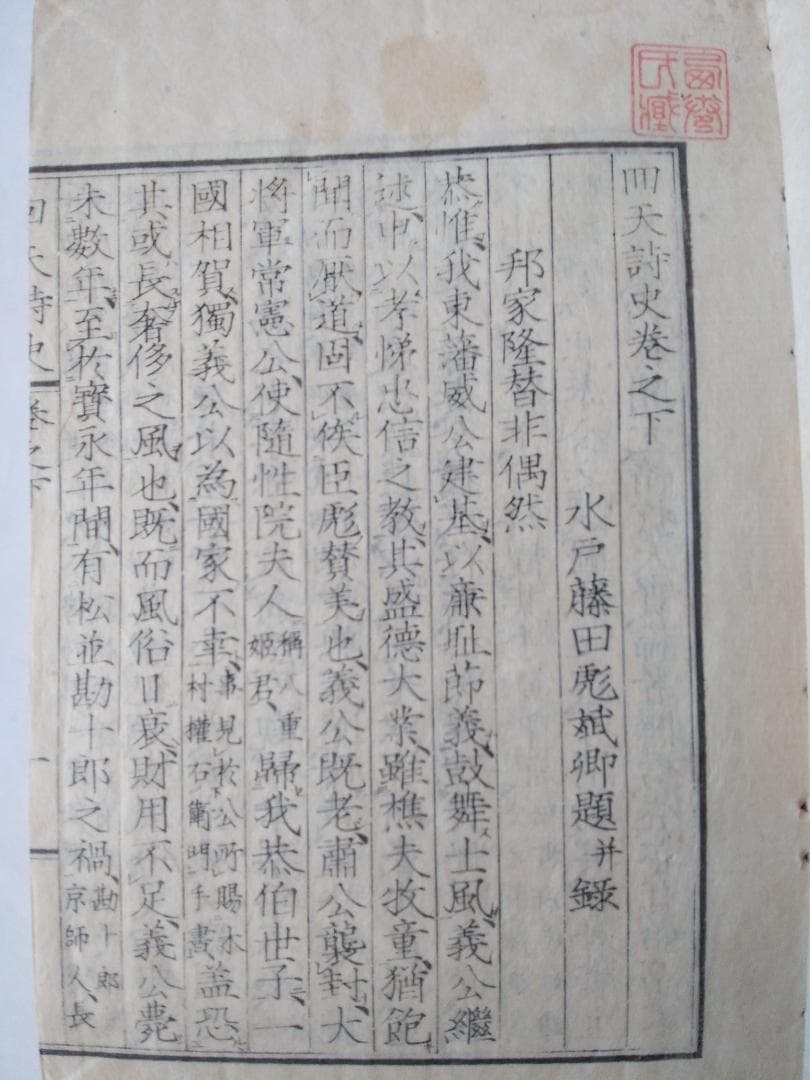 回天詩史卷之下
水戸藤田彪斌卿題并錄
邦家隆替非偶然
恭惟我東藩威公建基以廉耻節義鼓舞士風義公繼
述申以孝悌忠信之教其盛德大業雖樵夫牧童猶飽
聞而厭道固不俟臣彪賛美也義公既老肅公襲封大
將軍常憲公使隨性院夫人稱八重姬君歸我恭伯世子一
國相賀獨義公以為國家不幸事見於公所賜木村權右衛門手書蓋恐
其或長奢侈之風也既而風俗日衰財用不足義公薨
未數年至於寶永年間有松並勘十郎之禍勘十郎京師人長
回天詩史 卷之下 一